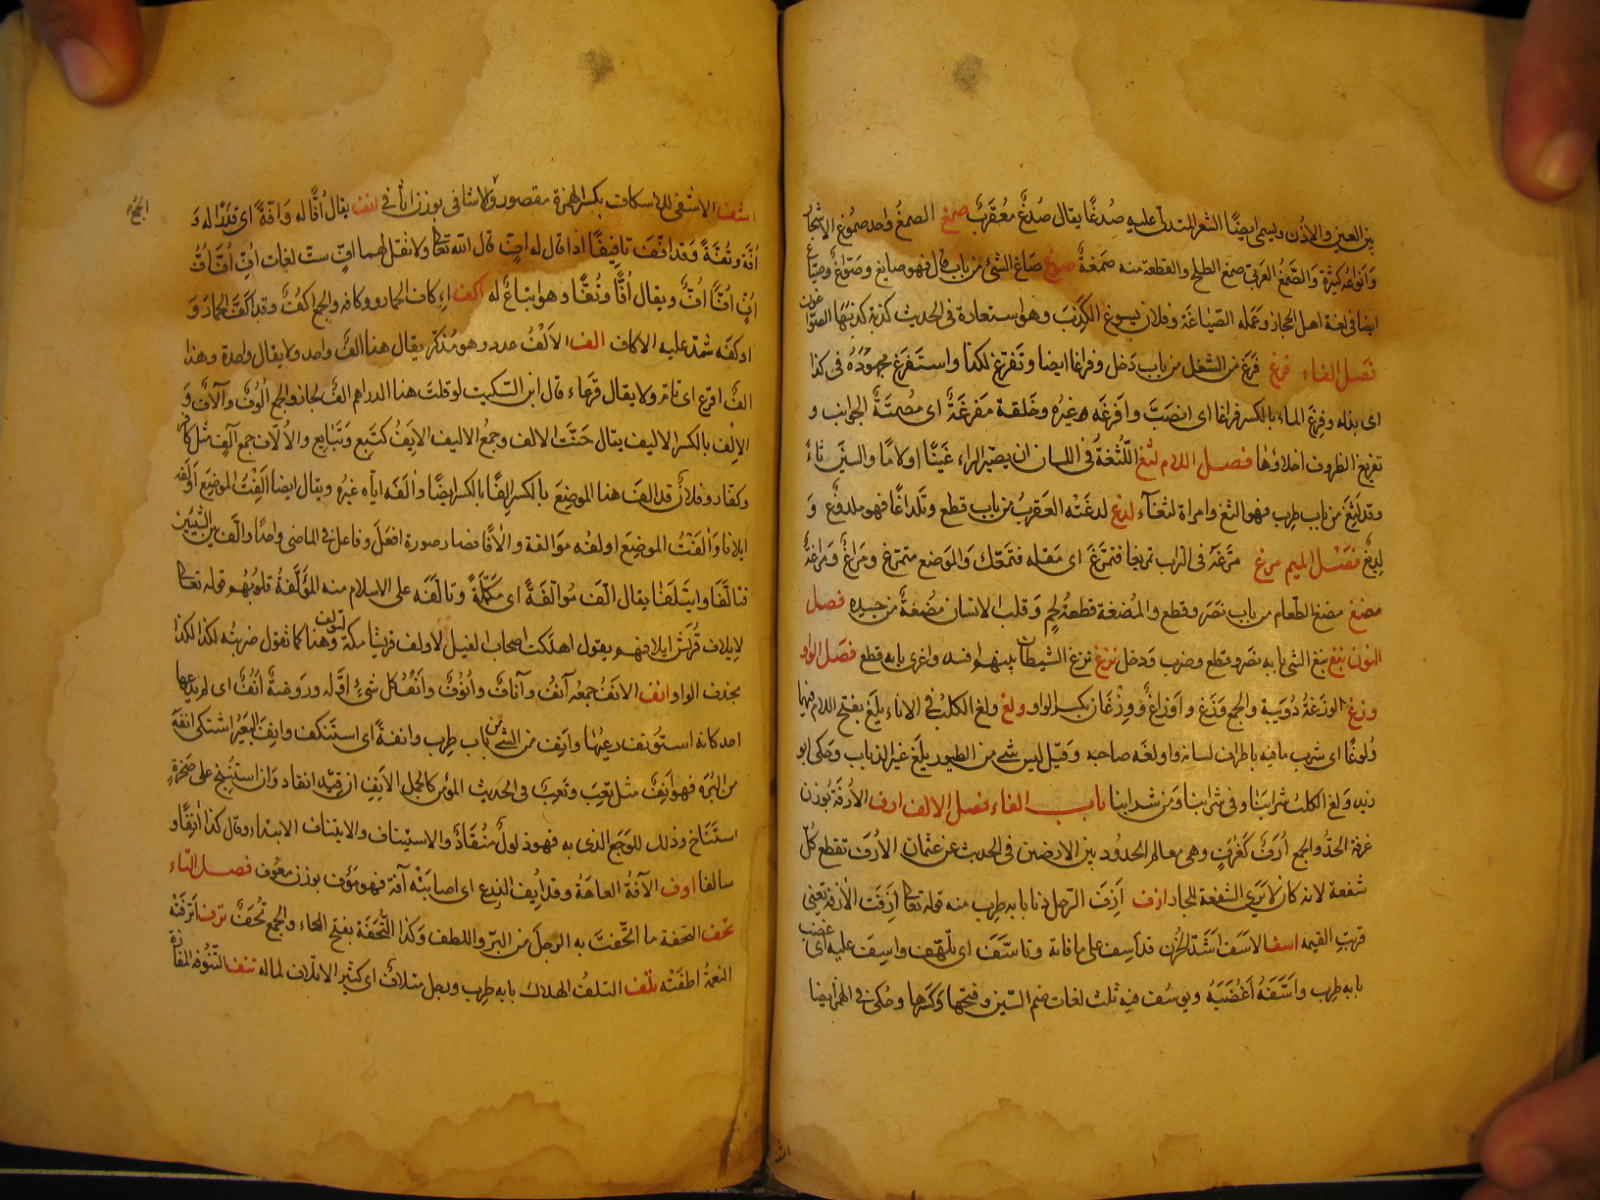 بين العين والاذن ويسمى ايضًا الشعر المتدلى عليه صُدغًا يقال صُدغٌ مُعَقْرَبٌ صمغ الصمغُ واحد صموغ الاشجار
وَانواعه كثيرة وَالصَّمغُ العَربيّ صمغ الطلح والقطعة منه صَمغَةٌ صوغ صَاغ الشئ من باب قال فهو صايغ وصَوّاغٌ وصيّاغ
ايضا فى لغة اهل الحجاز وعَمَله الصيَاغَة وفلان يسوغ الكَذِبَ وهو استعارة فى الحديث كذبة كذبَهَا الصوّاغون
فَصل الفاء فرغ فَرَغَ من الشغل من باب دَخل وفراغا ايضا وَتَفرّغ لكذا واستَفرَغ مجهُودَهُ فى كذا
اى بذله وفَرِغ الماء بالكسر فراغا اى انصَبَّ وافرغَه غيره وحَلقة مُفرَغَةٌ اى مُصمتَةٌ الجوانب و
تفريغ الظروف اخلاؤها فصل اللام لثغ اللّثغَةُ فى اللسان ان يصيّر الراء غَينًا او لامًا والسينَ ثاءً
وقد لثِغَ من باب طرِب فهو الثغ وامراة لثغاء لدغ لدغَتْه العَقربُ من باب قطع وتَلداغًا فهو ملدوغٌ وَ
لدِيغٌ فصل الميم مرغ مَرّغَه فى التراب تمريغا فتَمرّغ اى مَعّكه فتمعّك وَالموضع متمرّغ ومَراغٌ ومَراغةٌ
مضغ مضغ الطّعام من باب نَصَرَ وقطع والمُضغة قطعةُ لحمٍ وَقلب الانسان مُضغةٌ من جسده فصل
النون نبغ نبَغ الشئ بابه نصر وقطع وضرب وَدخل نزغ نَزغ الشيطان بينهم افسد واغرى بابه قطع فصل الواو
وزغ الوَزَغَةُ دُوَيبة والجمع وَزَغ وَاَوزاغٌ وَوِزْغان بكسر الواو ولغ ولغ الكلبُ فى الاناء يلَغ بفتح اللام فيهما
وُلوغًا اى شرب مافيه باطراف لسانه واولغَه صاحبه وَقيل ليس شئ من الطيور يلَغ غير الذباب وحكى ابو
زيد وَلغ الكلبُ شرابنا وفى شرابنا وَمن شرابنا باب الفاء فصل الالف ارف الاُرفَة بوزن
غرفة الحَدّ والجمع اُرَفٌ كَغُرَفٍ وهى معالم الحدود بين الارضين فى الحديث عن عثمان الاُرَف تقطع كُلّ
شفعة لانه كان لا يَرى الشفعة للجار ازف اَزِفَ الرّحل دنا بابه طرب منه قوله تعالى اَزِفَت الآزفة يعنى
قربت القيمة اسف الاسَف اشَدّ الحُزن قد اَسِف على ما فاته وتاسّفَ اى تلهّف واسِفَ عليه اى غضب
بابه طرب واَسَفَهُ اَغضَبَهُ ويوسُف فيه ثلث لغات ضم السّين وفتحها وَكسرها وحُكى فى الهمز ايضا
اشف الاشفى للاسكاف بكسر الهمزة مقصور والاشافى بوزن اثافى افف يقال اُفًّا له وَاُفّةً اى قَذَرًا له وَ
اُفّة وتُفّةً وَقد افّفَ تافيفًا اذا قال له اُفٍ قال الله تعالى ولا تقل لهما افّ ست لغات اُفِّ اُفَّ اُفُّ
اُفٍّ اُفًّا اُفٌّ ويقال اُفًّا وتُفًّا وهو اتباعٌ له اكف اِكاف الحمار ووكافه والجمع اُكُفٌ وقد آكفَ الحمارَ وَ
اوكفَه شدّ عليه الاكاف الف الاَلْفُ عدد وهو مُذكّر يقال هذا الفٌ واحد ولا يقال واحدة وهذا
الفٌ اقرع اى تام ولا يقال قرعاء قال ابن السّكيت لو قلتَ هذه الدراهم الف لجاز والجمع اُلوفٌ وآلافٌ وَ
الاِلْف بالكسر الاليف يقال حَنّت الالف وجمعُ الاليف الايِفُ كتَبِيع وتَبَايع والاُلّاف جمع آلف مثل كافر
وكفّار وفلانٌ قد الفَ هذا الموضِعَ بالكسر اِلفًا بالكسر ايضًا وآلفَه ايّاه غيرُه ويقال ايضا آلَفْتُ الموضِعَ اُولفه
ايلافا وَآلَفْتُ الموضِعَ اولفُه مؤالفة والافًا فصار صورة افعَلَ وفاعل فى الماضى واحدًا والّف بين الشيئين
فتالّفَا وايتلفَا يقال الّفَ مُوَالّفَةً اى مكمّلةً وتالّفَه على الاسلام منه المُؤلّفَةُ قلوبُهم قوله تعالى
لايلاف قُرَيش ايلافهم يقول اهلكت اصحاب الفيل لاولف قريشا مكة وهذا كما تقول ضربتُه لكذا لكذا
بحذف الواو انف الانفُ جمعُه آنُفٌ وآنافٌ واُنُوفٌ وانفُ كل شئ اوّله وروضةٌ اُنُفٌ اى لم يَرعها
احد كانه استؤنف رعيُها وانِف من الشئ من باب طرب وانفةً اى استنكف وانِفَ البَعيرُ اشتكى انفَه
من البُرَةِ فهو اَنِفٌ مثل تَعِبَ وتَعِبٌ فى الحديث المؤمن كالجمل الاَنِفِ ان قيد انقاد وَان استنيخ على صَخرةٍ
استَنَاخ وذلك للوَجَع الذى به فهو ذلول منقادٌ والاستيناف والايتناف الابتداء وقال كذا آنِفًا و
سالفا اوف الآفةُ العاهَةُ وقد اِيفَ الزرع اى اصابَتْه آفة فهو مَؤُف بوزن معُوف فصل التاء
تحف التحفة ما اتحَفتَ به الرجلَ من البرّ واللطف وَكذا التُّحَفة بفتح الحاء والجمع تُحَفٌ ترف اَترَفَتْه
النعمةُ اطغَتْه تلف التلفُ الهلاك بابه طرب ورجل متلافٌ اى كثير الاتلاف لماله تنف التّنُوفة المفازة